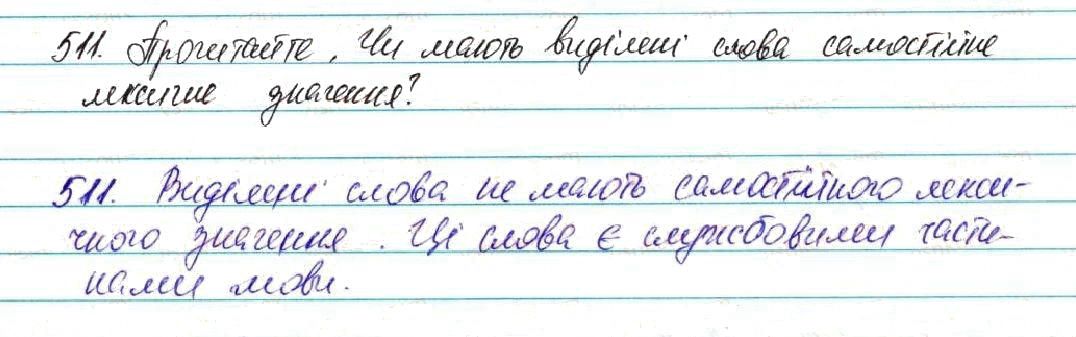 511. Прочитайте. Чи мають виділені слова самостійне
лексичне значення?
511. Виділені слова не мають самостійного лекси-
чного значення. Ці слова є службовими части-
нами мови.